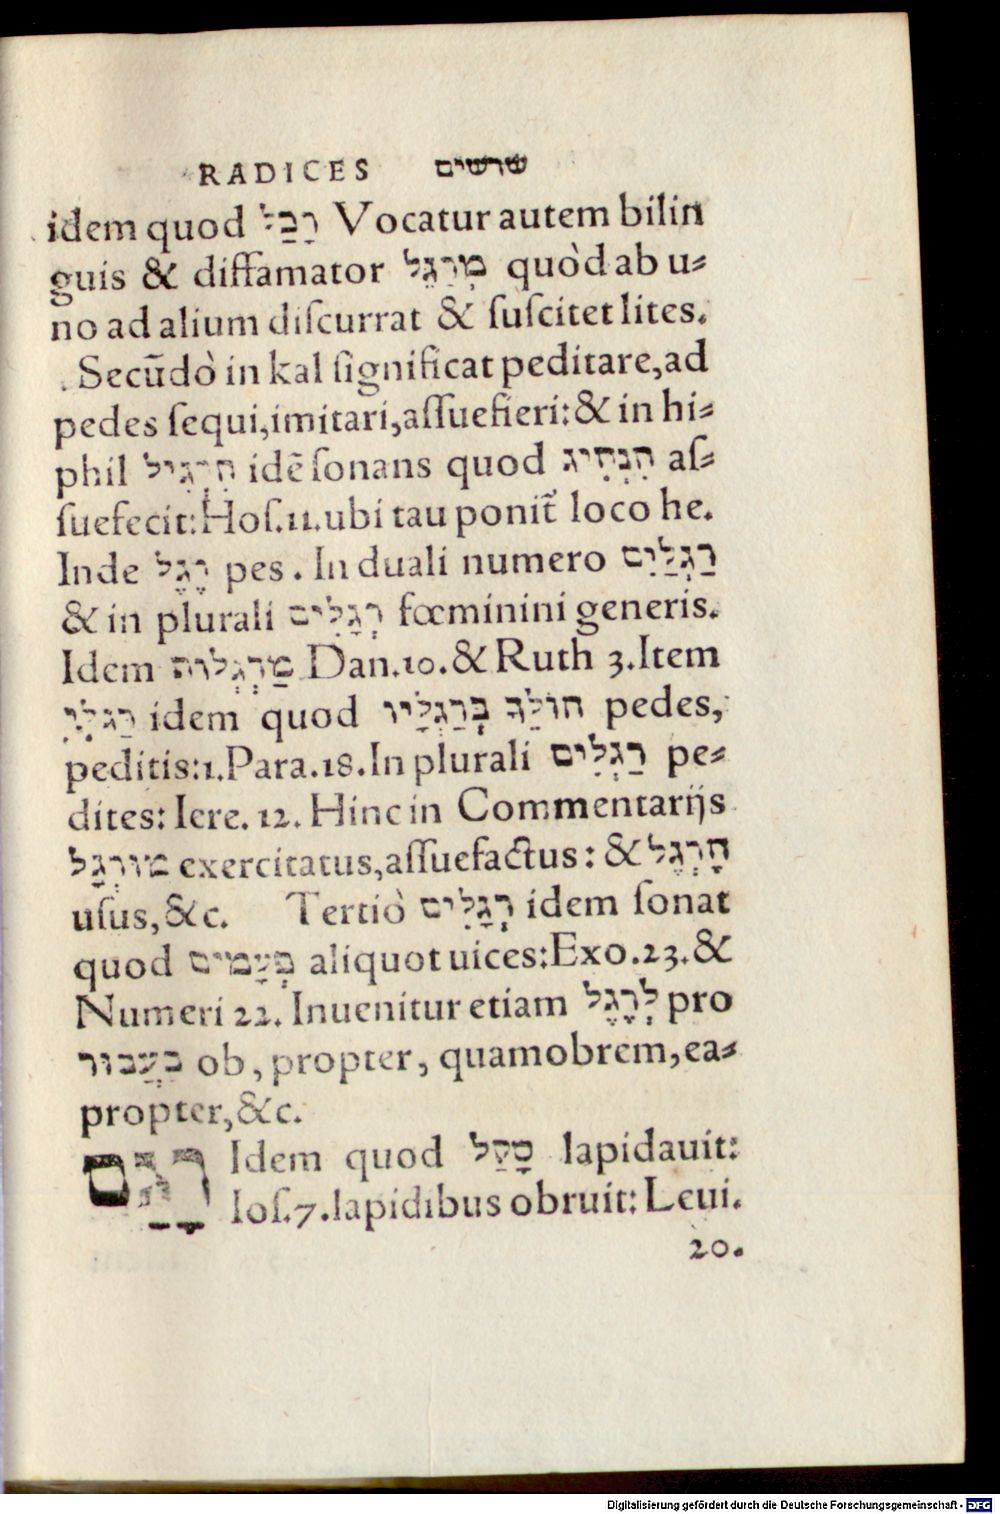 RADICES שרשים
idem quod רָכַל Vocatur autem bilin
guis & diffamator מְרַגֵּל quòd ab u⸗
no ad alium diſcurrat & ſuſcitet lites.
Secūdò in kal ſignificat peditare, ad
pedes ſequi, imitari, aſſuefieri: & in hi⸗
phil הִרְגִּיל idē ſonans quod הִנְהִיג aſ⸗
ſuefecit: Hoſ. 11. ubi tau ponit̃ loco he.
Inde רֶגֶל pes. In duali numero רַגְלַיִם
& in plurali רְגָלִים fœminini generis.
Idem מַרְגְּלוֹת Dan. 10. & Ruth 3. Item
רַגְלִי idem quod הוֹלֵךְ בְּרַגְלָיו pedes,
peditis: 1. Para. 18. In plurali רַגְלִים pe⸗
dites: Iere. 12. Hinc in Commentarijs
מוּרְגָּל exercitatus, aſſuefactus: & הֶרְגֵּל
uſus, &c. Tertiò רְגָלִים idem ſonat
quod פְּעָמִים aliquot uices: Exo. 23. &
Numeri 22. Inuenitur etiam לְרֶגֶל pro
בַּעֲבוּר ob, propter, quamobrem, ea⸗
propter, &c.
רָגַם Idem quod סָקַל lapidauit:
Ioſ. 7. lapidibus obruit: Leui.
20.
Digitalisierung gefördert durch die Deutsche Forschungsgemeinschaft - DFG